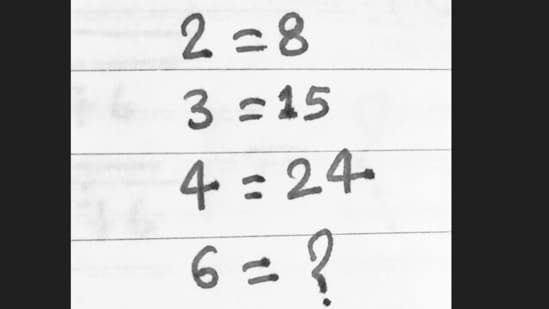 2 = 8
3 = 15
4 = 24
6 = ?